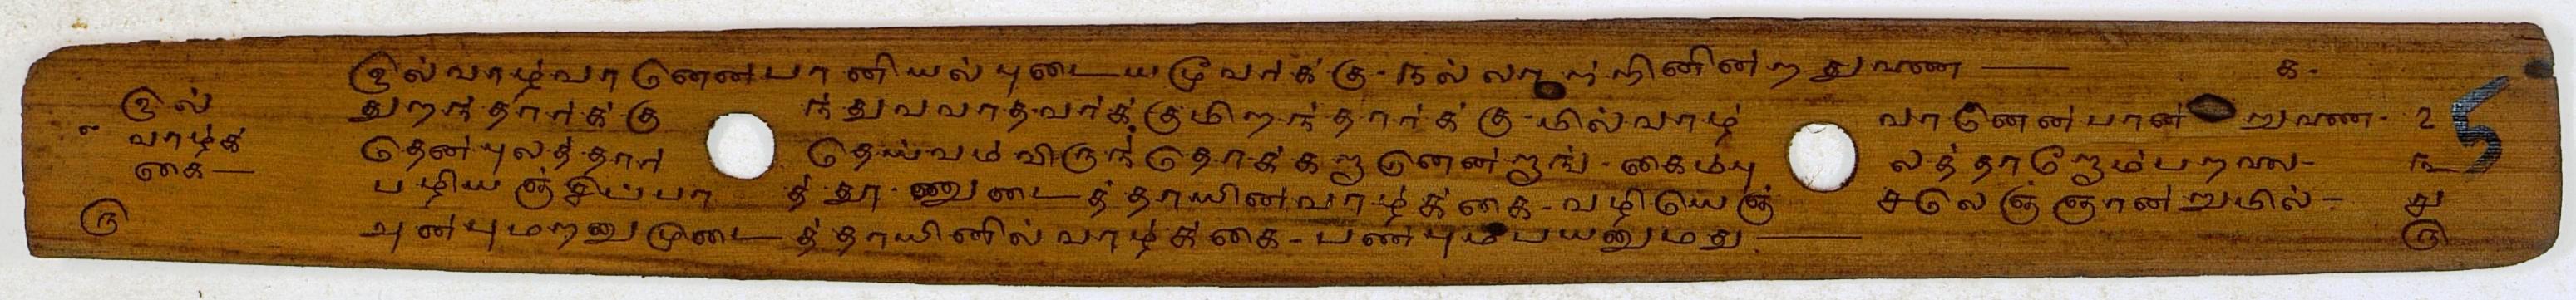 இல்வாழ்வானென்பானியல்புடையமூவர்க்கு - நல்லாற்றினின்றதுணை — ௧
இல்
வாழ்க்
கை —
௫
துறந்தார்க்கு ந்துவவாதவர்க்குமிறந்தார்க்கு - மில்வாழ் வானென்பான் றுணை - ௨
தென்புலத்தார் தெய்வம்விருந்தொக்கறானென்றாங் - கைம்பு லத்தாறோம்பறலை - ௩
பழியஞ்சிப்பா த்தூணுடைத்தாயின்வாழ்க்கை - வழியெஞ் சலெஞ்ஞான்றுமில் - ௪
அன்புமறனுமுடை த்தாயினில்வாழ்க்கை - பண்பும்பயனுமது — ௫
5